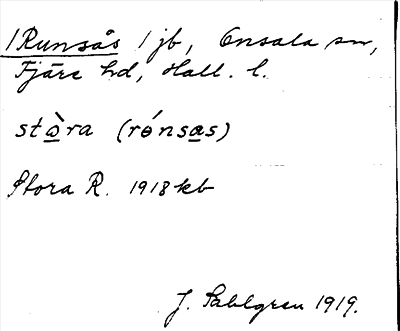 /Runsås / jb, Onsala sn,
Fjäre hd, Hall. l.
stɑ̀ra (rónsɑs)
Stora R. 1918 kb
J. Sahlgren 1919.